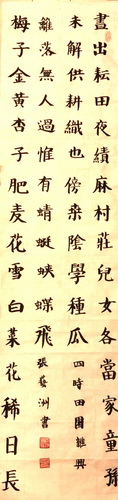 晝出耘田夜績麻村莊兒女各當家童孫
未解供耕織也傍桑陰學種瓜 四時田園雜興
梅子金黃杏子肥麦花雪白菜花稀日長
離落無人過惟有蜻蜓蛺蝶飛 張藝洲書